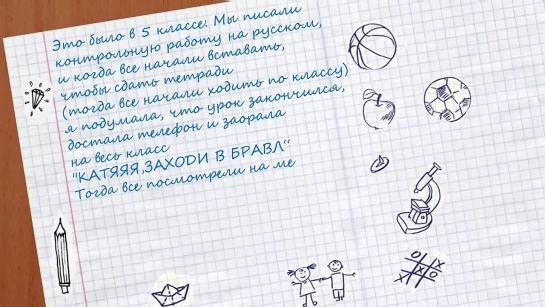 Это было в 5 классе: Мы писали
контрольную работу на русском,
и когда все начали вставать,
чтобы сдать тетради
(тогда все начали ходить по классу)
я подумала, что урок закончился,
достала телефон и заорала
на весь класс
"КАТЯЯЯ,ЗАХОДИ В БРАВЛ"
Тогда все посмотрели на ме